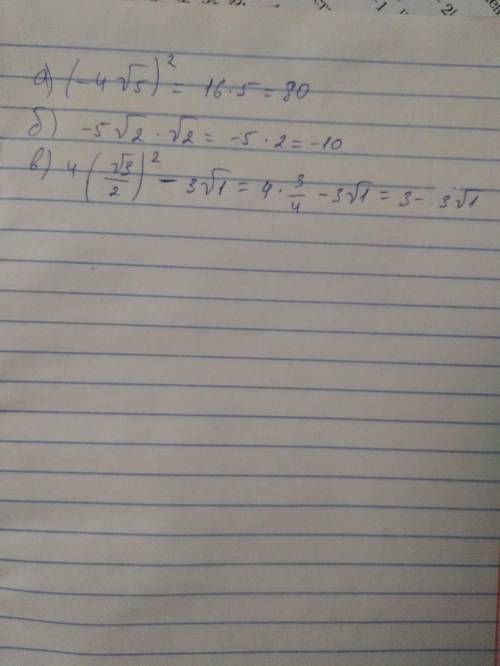 а) (-4√5)² = 16·5 = 80
б) -5√2 · √2 = -5·2 = -10
в) 4(√3/2)² - 3√1 = 4·3/4 - 3√1 = 3 - 3√1